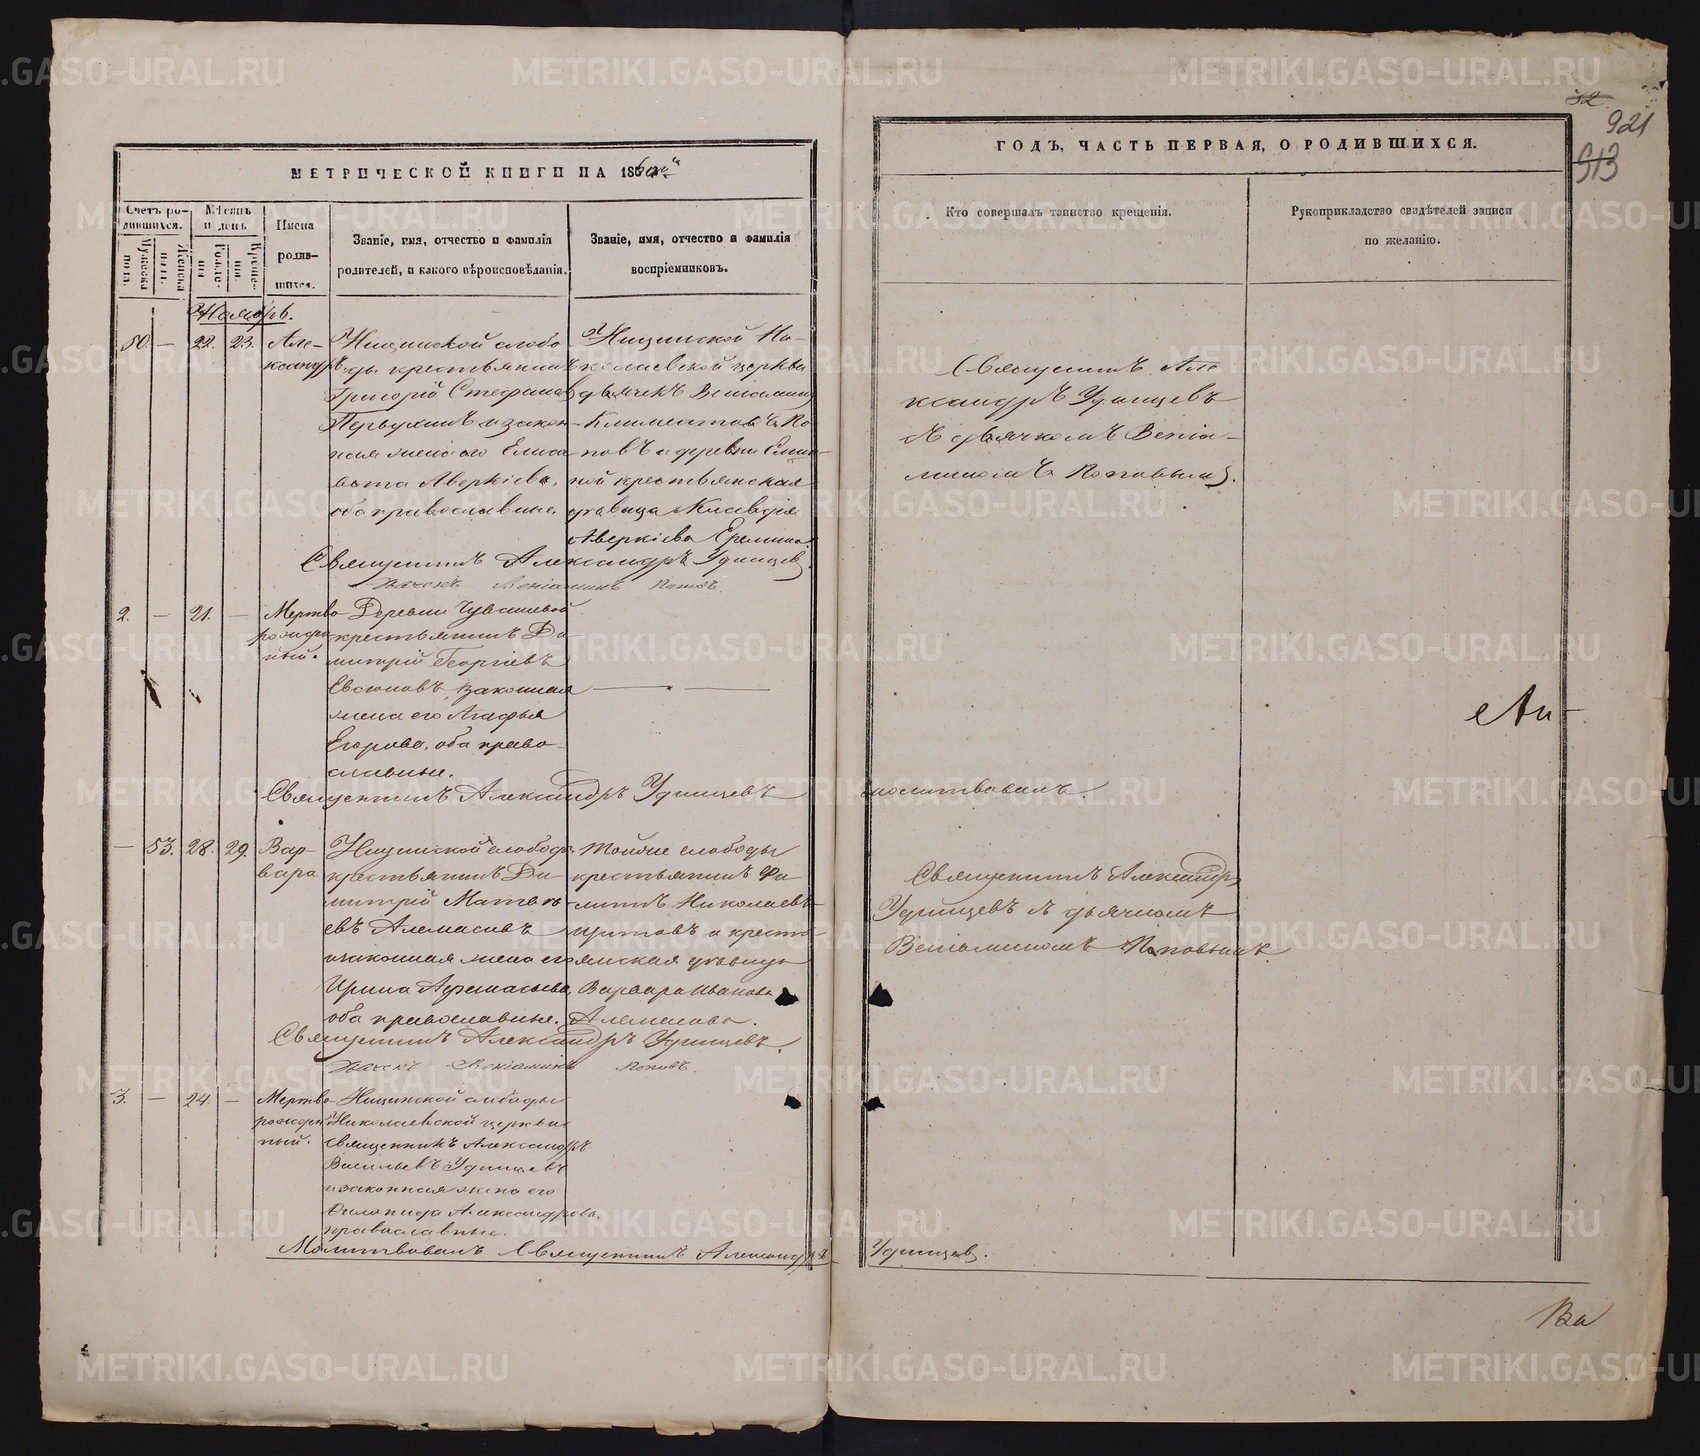 МЕТРИЧЕСКОЙ КНИГИ НА 186
Счетъ ро-
дившихся.
Мѣсяцъ
и день.
Имена
родив-
шихся.
Званіе, имя, отчество и фамилія
родителей, и какого вѣроисповѣданія.
Званіе, имя, отчество и фамилія
воспріемниковъ.
Ноябрь.
50. — 22. 23. Але-
ксандръ
Ницинской слобо-
ды крестьянинъ
Григорій Стефановъ
и закон-
ная жена его Елиса-
вета Аверкіева,
оба православные.
Ницинской Ни-
колаевской церкви
дьячекъ Веніаминъ
Климентовъ По-
повъ и деревни
крестьянская
дѣвица Клавдія
Аверкіева Еремина.
Священникъ Александръ Удинцевъ
Дьячекъ Веніаминъ Поповъ.
2. — 21. — Мертво
рожден-
ный.
Деревни Чувашевой
крестьянинъ Ди-
митрій Георгіевъ
законная
жена его Агафья
Егорова, оба право-
славные.
Священникъ Александръ Удинцевъ
— 53. 28. 29. Вар-
вара
Ницинской слободы
крестьянинъ Ди-
митрій Матвѣ-
евъ Алемасовъ
и законная жена его
Ирина Афанасьева,
оба православные.
Тойже слободы
крестьянинъ Фи-
липпъ Николаевъ
и кресть-
янская дѣвица
Варвара Иванова
Алемасова.
Священникъ Александръ Удинцевъ.
Дьячекъ Веніаминъ Поповъ.
3. — 24. — Мертво
рожден-
ный.
Ницинской слободы
Николаевской церкви
священникъ Александръ
Васильевъ Удинцевъ
и законная жена его
Александрова,
православные.
Молитвовалъ Священникъ Александръ
ГОДЪ, ЧАСТЬ ПЕРВАЯ, О РОДИВШИХСЯ.
921
913
Кто совершалъ таинство крещенія.
Рукоприкладство свидѣтелей записи
по желанію.
Священникъ Але
ксандръ Удинцевъ
съ дьячкомъ Веніа-
миномъ Поповымъ.
молитвовалъ.
Священникъ Александръ
Удинцевъ съ дьячкомъ
Веніаминомъ Поповымъ.
Удинцевъ.
METRIKI.GASO-URAL.RU